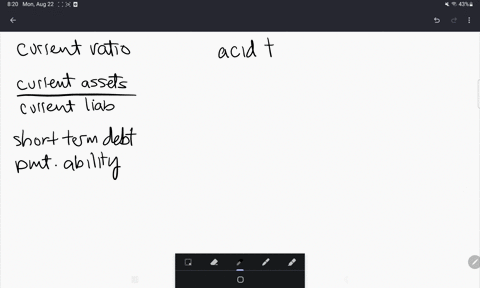 8:20 Mon, Aug 22
43%
current ratio
current assets
current liab
short term debt
pmt. ability
acid t